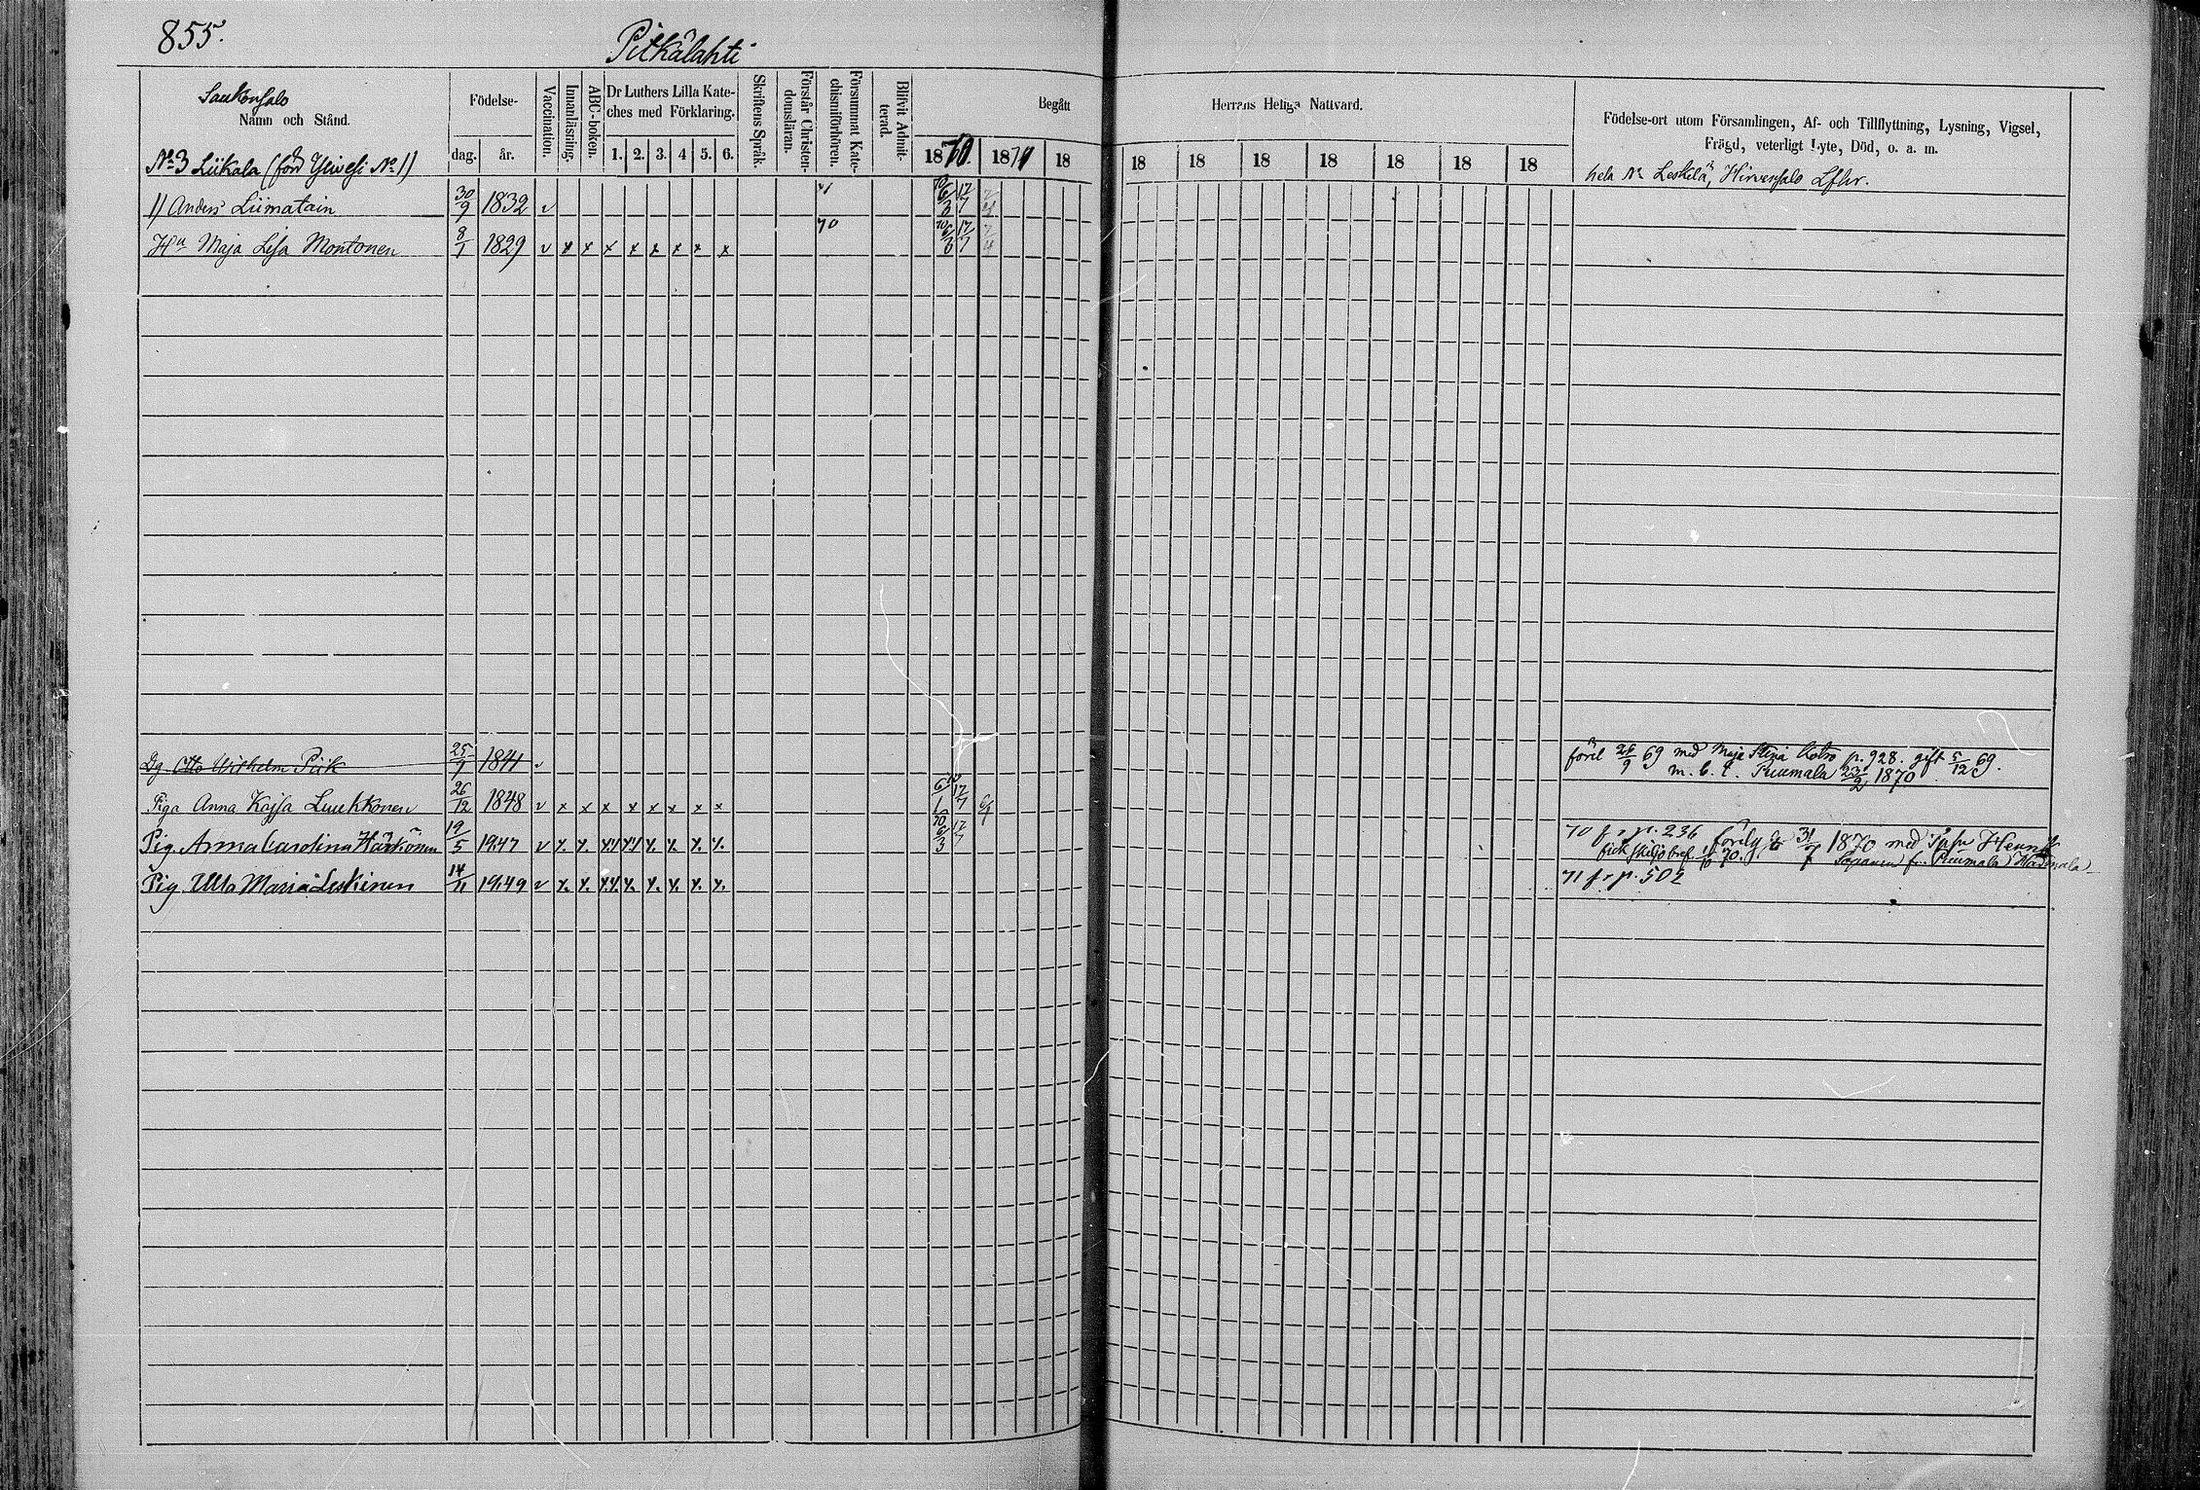 855.
Pitkälahti
Saukonsalo
Namn och Stånd.
Födelse-
dag.
år.
Vaccination.
Innanläsning.
ABC-boken.
Dr Luthers Lilla Kate-
ches med Förklaring.
1. 2. 3. 4 5. 6.
Skriftens Språk.
Förstår Christen-
domsläran.
Försummat Kate-
chismiförhören.
Blifvit Admit-
terad.
Begått Herrans Heliga Nattvard.
1870. 1871 18 18 18 18 18 18 18 18
Födelse-ort utom Församlingen, Af- och Tillflyttning, Lysning, Vigsel,
Frägd, veterligt Lyte, Död, o. a. m.
No 3 Liikala (förd No 1) hela No Leskelä, Hirvensalo
1) Anders Liimatain 30/9 1832 v
Hu Maja Lisa Montonen 8/1 1829 v x x x x x x x x 70
Dg. Otto Wilhelm Piik 25/7 1841 v föril 26/9 69 med Maja Stina p. 928. gift 5/12 69.
m. b. t. Puumala 23/2 1870
Piga Anna Kajsa Luukkonen 26/12 1848 v x x x x x x x x
Pig. Anna Carolina Härkönen 19/5 1947 v x. x. x x x. x. x. x. 70 fr p. 236 1870 med
fick skiljobref 70. fr. Puumala
Pig. Ulla Maria Leskinen 14/11 1949 v x. x. x x. x. x. x. x. x. 71 fr p. 502